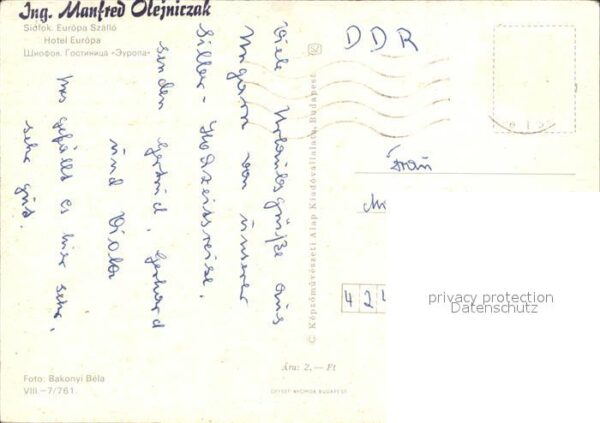 Ing. Manfred Olejniczak
Siófok. Európa Szálló
Hotel Európa
Шиофок. Гостиница «Эуропа»
Viele Urlaubsgrüße aus
Ungarn von unserer
Silber-Hochzeitsreise.
senden Gertrud, Gerhard
und Viola
Uns gefällt es hier sehr,
sehr gut.
Foto: Bakonyi Béla
VIII –7/761.
© Képzőművészeti Alap Kiadóvállalata, Budapest
Ára: 2,— Ft
OFFSET NYOMDA BUDAPEST
DDR
Frau
42
privacy protection
Datenschutz